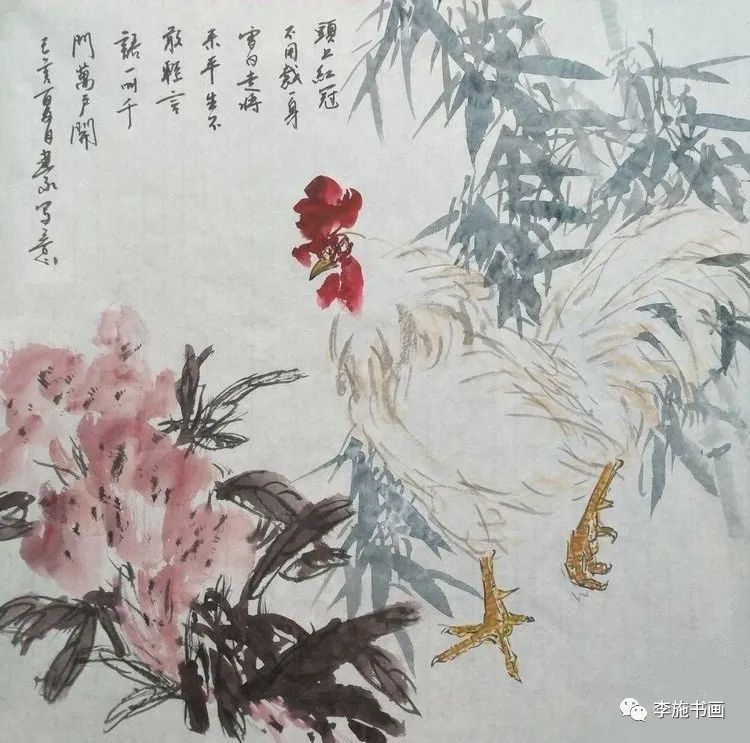 頭上紅冠
不用裁一身
雪白走將
来平生不
敢輕言
語一叫千
門萬戶開
己亥夏日写意
李施书画